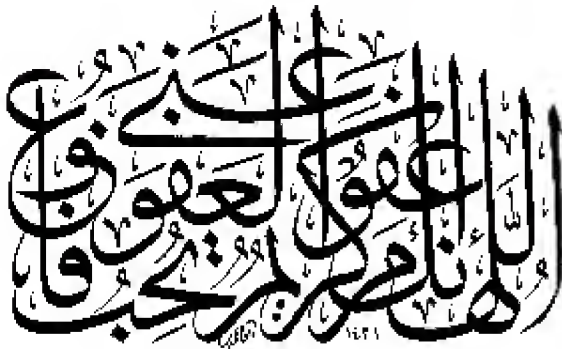 اللهم إنك عفو كريم تحب العفو فاعف عني
١٤٣١